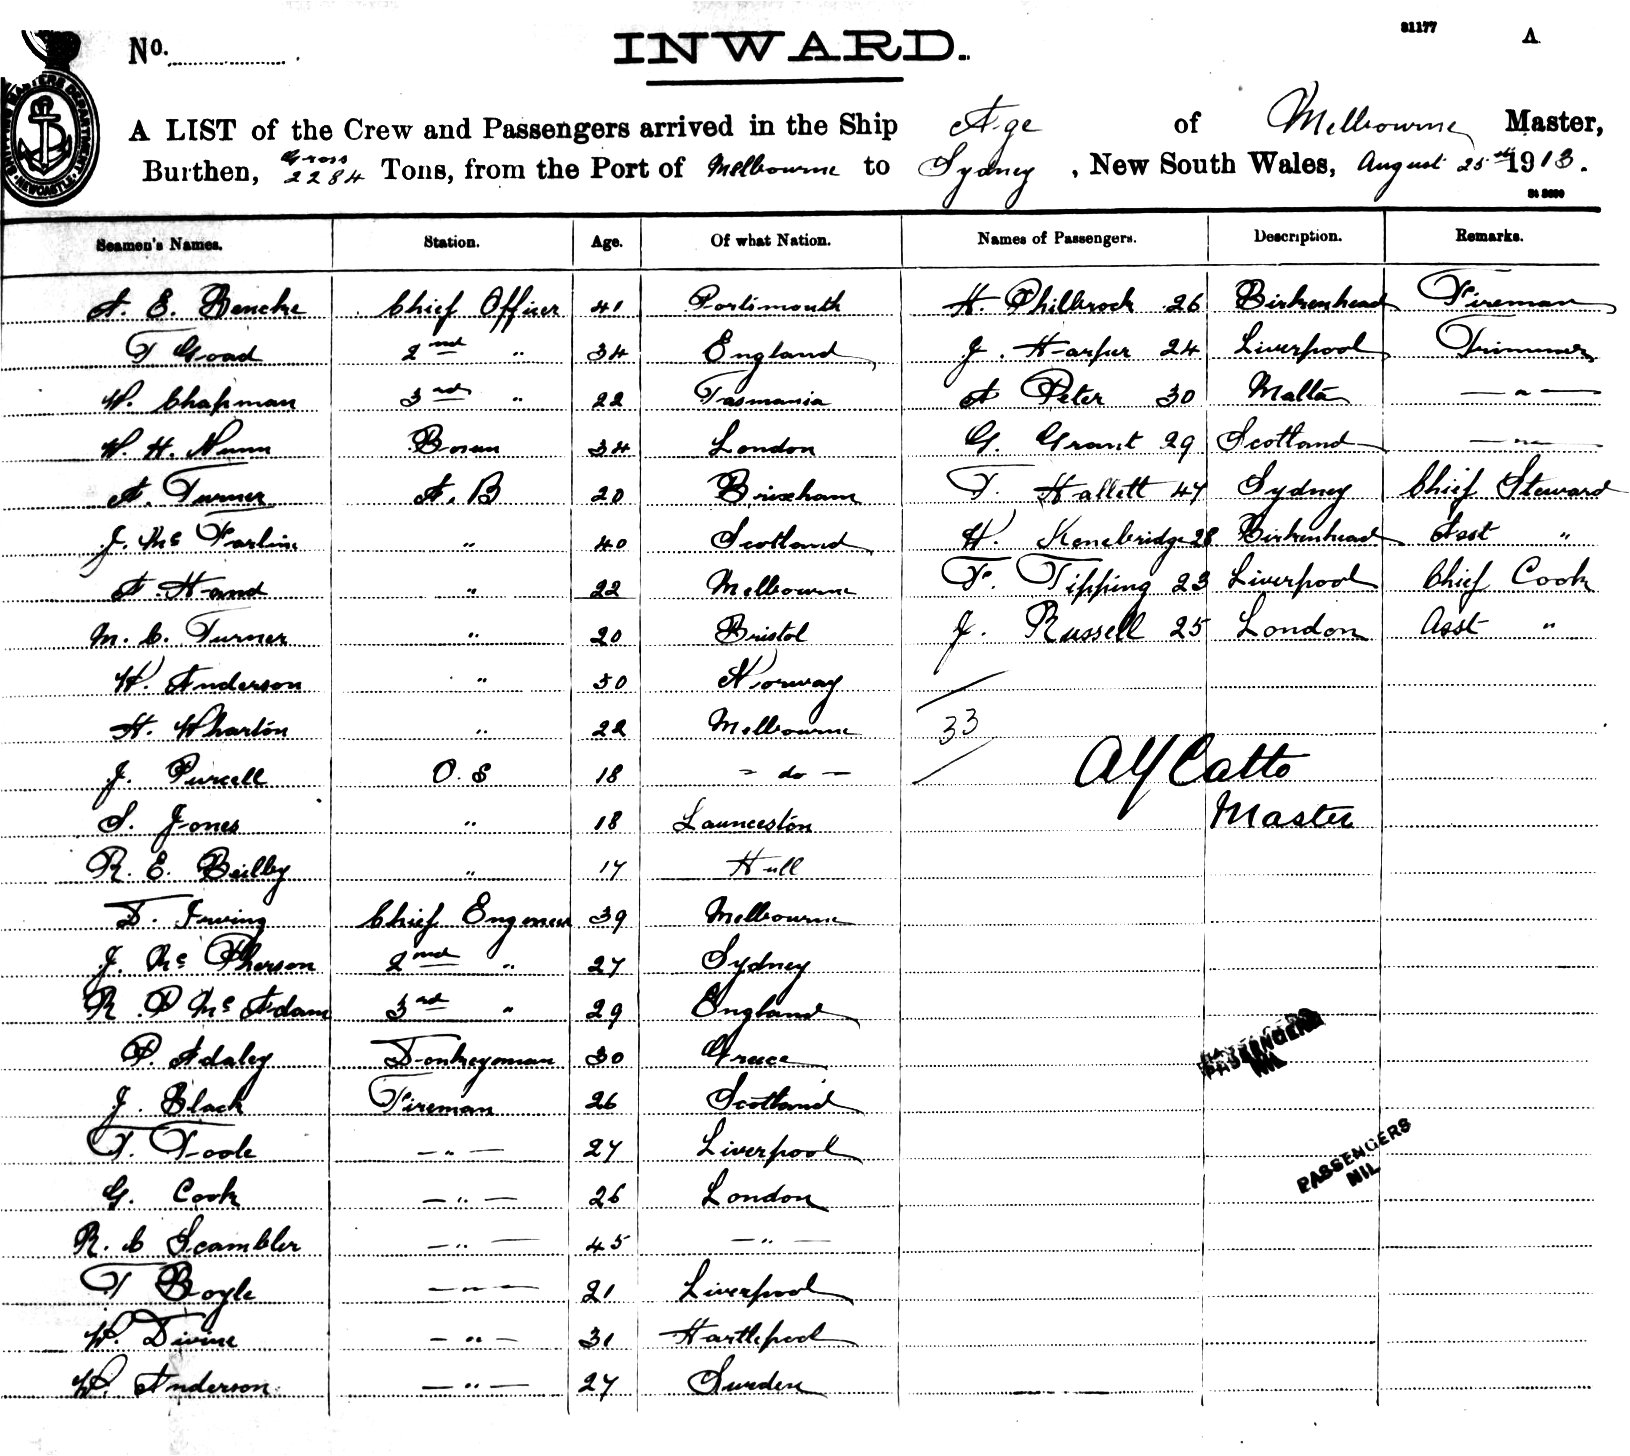 No.
INWARD.
31177
A
A LIST of the Crew and Passengers arrived in the Ship Age of Melbourne Master,
Burthen, Gross 2284 Tons, from the Port of Melbourne to Sydney, New South Wales, August 25th 1913.
Seamen's Names. Station. Age. Of what Nation. Names of Passengers. Description. Remarks.
A. E. Bencke Chief Officer 41 Portsmouth H. Philbrock 26 Birkenhead Fireman
T Goad 2nd " 34 England J. Harper 24 Liverpool Trimmer
W. Chapman 3rd " 22 Tasmania A Peter 30 Malta — " —
W. H. Nunn Bosun 34 London G. Grant 29 Scotland — " —
A. Turner A. B 20 Brixham T. Hallett 47 Sydney Chief Steward
J. Mc Farlin " 40 Scotland H. Kenebridge 28 Birkenhead Asst "
A. Hand " 22 Melbourne F. Tipping 23 Liverpool Chief Cook
M. C. Turner " 20 Bristol J. Russell 25 London Asst "
W. Anderson " 50 Norway
H. Wharton " 22 Melbourne 33
J. Purcell O. S 18 – do – Catto
S. Jones " 18 Launceston Master
R. E. Beilby " 17 Hull
D. Irving Chief Engeneer 39 Melbourne
J. Mc Pherson 2nd " 27 Sydney
R. P Mc Adam 3rd " 29 England
P. Adaley Donkeyman 30 Greece
PASSENGERS
NIL
J. Black Fireman 26 Scotland
T. Toole — " — 27 Liverpool
PASSENGERS
NIL
G. Cook — " — 26 London
R. C Scambler — " — 45 — " —
T Boyle — " — 21 Liverpool
W. Divine — " — 31 Hartlepool
W. Anderson — " — 27 Sweden